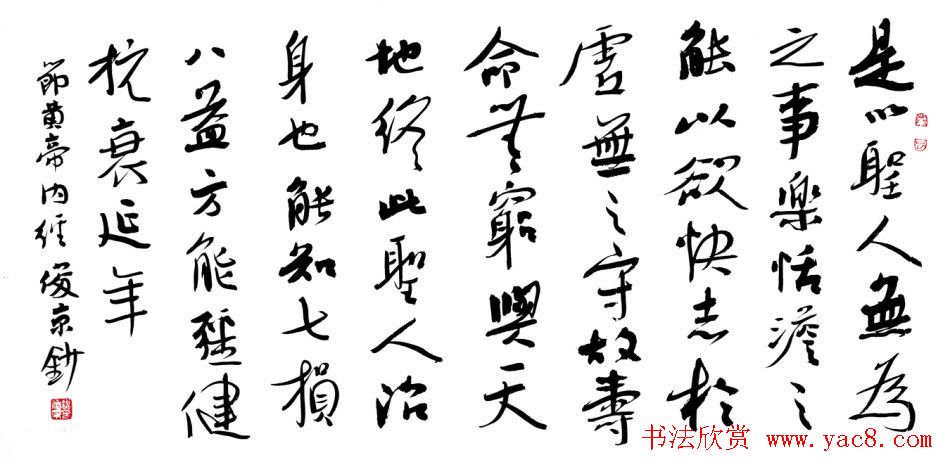 是以聖人無為
之事樂恬澹之
能以欲快志於
虛無之守故壽
命無窮與天
地終此聖人治
身也能知七損
八益方能強健
抗衰延年
節黄帝内經 俊京鈔
书法欣赏 www.yac8.com